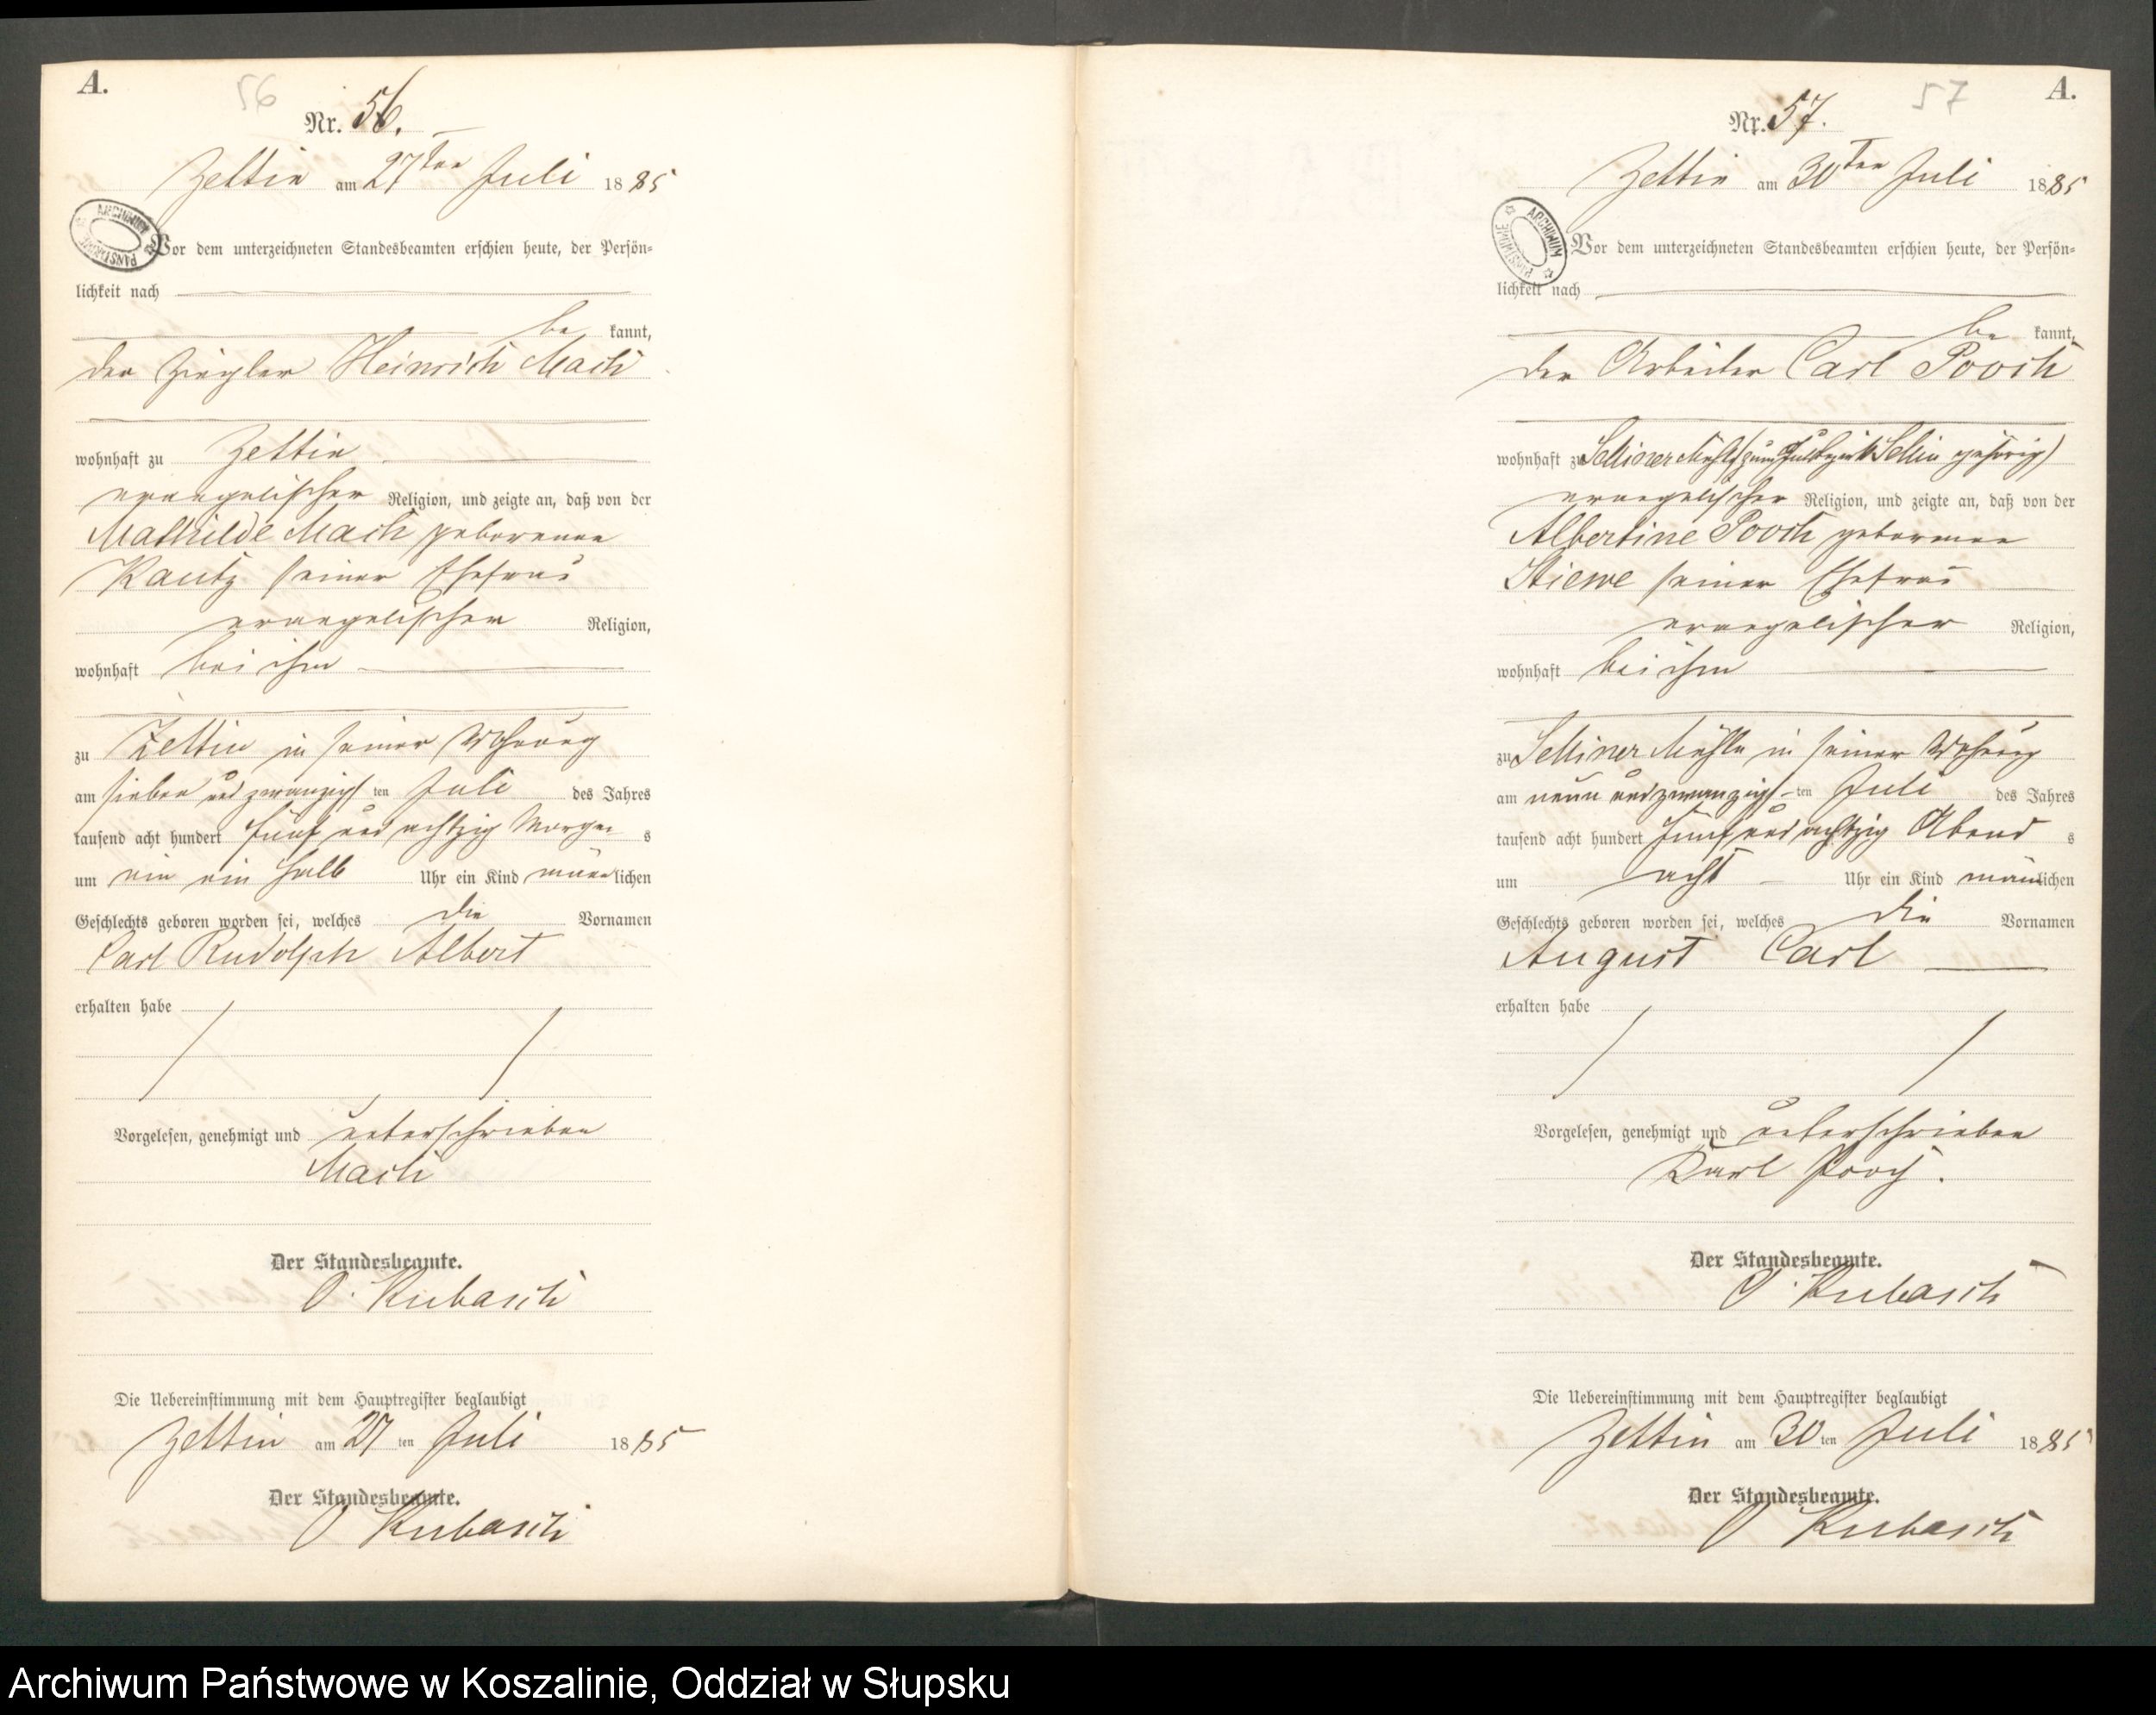 A.
56
Nr. 56.
Zettin am 27ten Juli 1885
ARCHIWUM PAŃSTWOWE
Vor dem unterzeichneten Standesbeamten erschien heute, der Persön=
lichkeit nach
be kannt,
der Ziegler Heinrich Mach
wohnhaft zu Zettin
evangelischer Religion, und zeigte an, daß von der
Mathilde Mach geborenen
Kautz seiner Ehefrau
evangelischer Religion,
wohnhaft bei ihm
zu Zettin in seiner Wohnung
am sieben und zwanzigsten Juli des Jahres
tausend acht hundert fünf und achtzig Morgens
um ein ein halb Uhr ein Kind männlichen
Geschlechts geboren worden sei, welches die Vornamen
Carl Rudolph Albert
erhalten habe
Vorgelesen, genehmigt und unterschrieben
Mach
Der Standesbeamte.
O. Kubasch
Die Uebereinstimmung mit dem Hauptregister beglaubigt
Zettin am 27 ten Juli 1885
Der Standesbeamte.
O Kubasch
57
A.
Nr. 57.
Zettin am 30ten Juli 1885
ARCHIWUM PAŃSTWOWE
Vor dem unterzeichneten Standesbeamten erschien heute, der Persön=
lichkeit nach
be kannt,
der Arbeiter Carl Pooch
wohnhaft zu Selliner Mühle (zum Gutsbezirk Sellin gehörig)
evangelischer Religion, und zeigte an, daß von der
Albertine Pooch geborenen
Stiewe seiner Ehefrau
evangelischer Religion,
wohnhaft bei ihm
zu Selliner Mühle in seiner Wohnung
am neun und zwanzigsten Juli des Jahres
tausend acht hundert fünf und achtzig Abends
um acht Uhr ein Kind männlichen
Geschlechts geboren worden sei, welches die Vornamen
August Carl
erhalten habe
Vorgelesen, genehmigt und unterschrieben
Karl Pooch.
Der Standesbeamte.
O. Kubasch
Die Uebereinstimmung mit dem Hauptregister beglaubigt
Zettin am 30 ten Juli 1885
Der Standesbeamte.
O Kubasch
Archiwum Państwowe w Koszalinie, Oddział w Słupsku